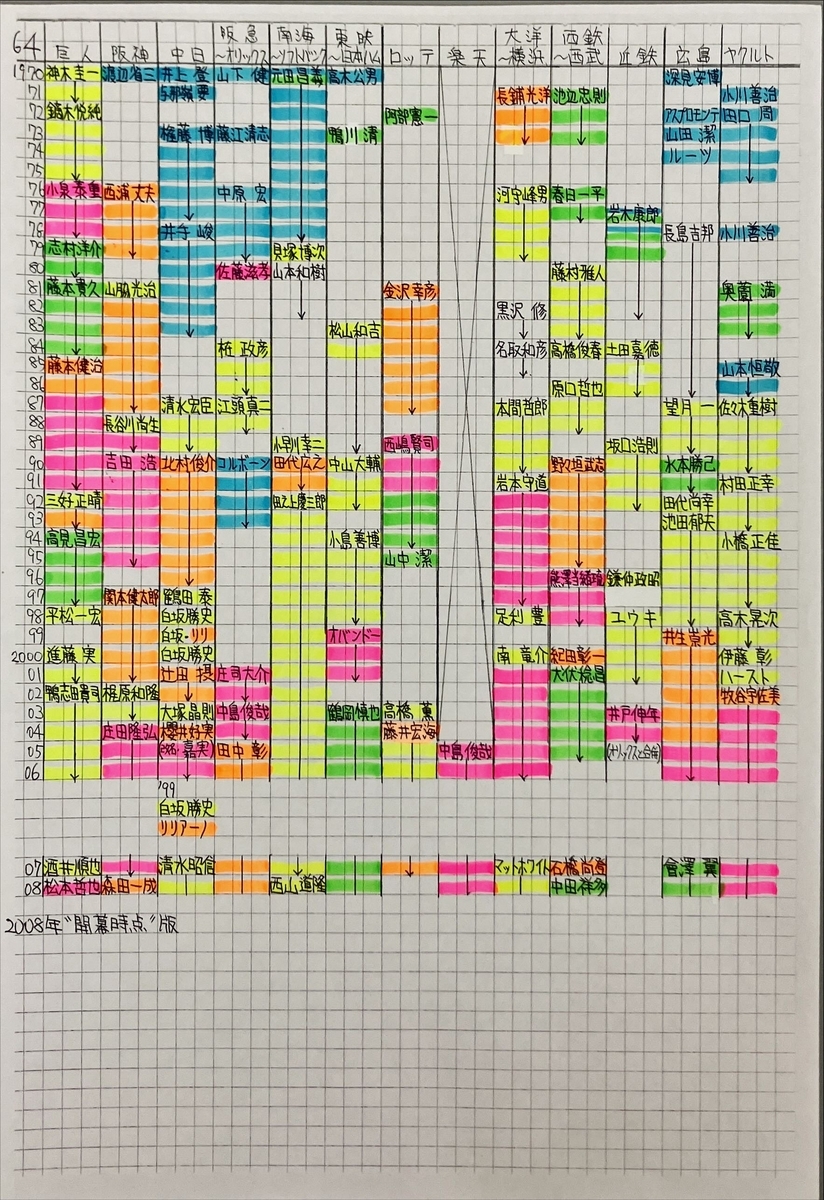 64 巨人 阪神 中日 阪急～オリックス 南海～ソフトバンク 東映～日本ハム ロッテ 楽天 大洋～横浜 西鉄～西武 近鉄 広島 ヤクルト
1970 神木圭一 渡辺省三 井上登 山下健 元田昌義 高木公男 深見安博
71 与那嶺要 長舗光洋 池辺忠則 小川善治
72 鏑木悦純 阿部憲一 アスプロモンテ 田口周
73 権藤博 藤江清志 鴨川清 山田潔
74 ルーツ
75
76 小泉泰重 西浦丈夫 中原宏 河守峰男 春日一平
77 岩木康郎
78 井手峻 長島吉邦 小川善治
79 志村洋介 貝塚博次
80 佐藤滋孝 山本和樹 藤村雅人
81 藤本貴久 山脇光治 金沢幸彦 奥薗満
82 黒沢修
83 松山和吉
84 柩政彦 名取和彦 高橋俊春 土田嘉徳
85 藤本健治 山本恒敬
86 原口哲也
87 清水宏臣 江頭真二 本間哲郎 望月一 佐々木重樹
88 長谷川尚生
89 小早川幸二 西嶋賢司 坂口浩則
90 吉田浩 北村俊介 コルボーン 田代広之 中山大輔 野々垣武志 水本勝己
91 岩本守道 村田正幸
92 三好正晴 田之上慶三郎 田代尚幸
93 池田郁夫
94 高見昌宏 小島善博 小橋正佳
95 山中潔
96 熊澤当緒琉 鎌仲政昭
97 関本健太郎 鶴田泰
98 平松一宏 白坂勝史 足利豊 ユウキ 高木晃次
99 白坂・リリ オバンドー 井生崇光
2000 進藤実 白坂勝史 南竜介 紀田彰一 伊藤彰
01 辻田摂 庄司大介 犬伏稔昌 ハースト
02 鴨志田貴司 梶原和隆 牧谷宇佐美
03 大塚晶則 中島俊哉 鶴岡慎也 高橋薫 井戸伸年
04 庄田隆弘 櫻井好実 藤井宏海
05 (改名・嘉実) 田中彰 中島俊哉 (オリックスと合併)
06
'99
白坂勝史
リリアーノ
07 酒井順也 清水昭信 マットホワイト 石橋尚登 會澤翼
08 松本哲也 森田一成 西山道隆 中田祥多
2008年“開幕時点”版